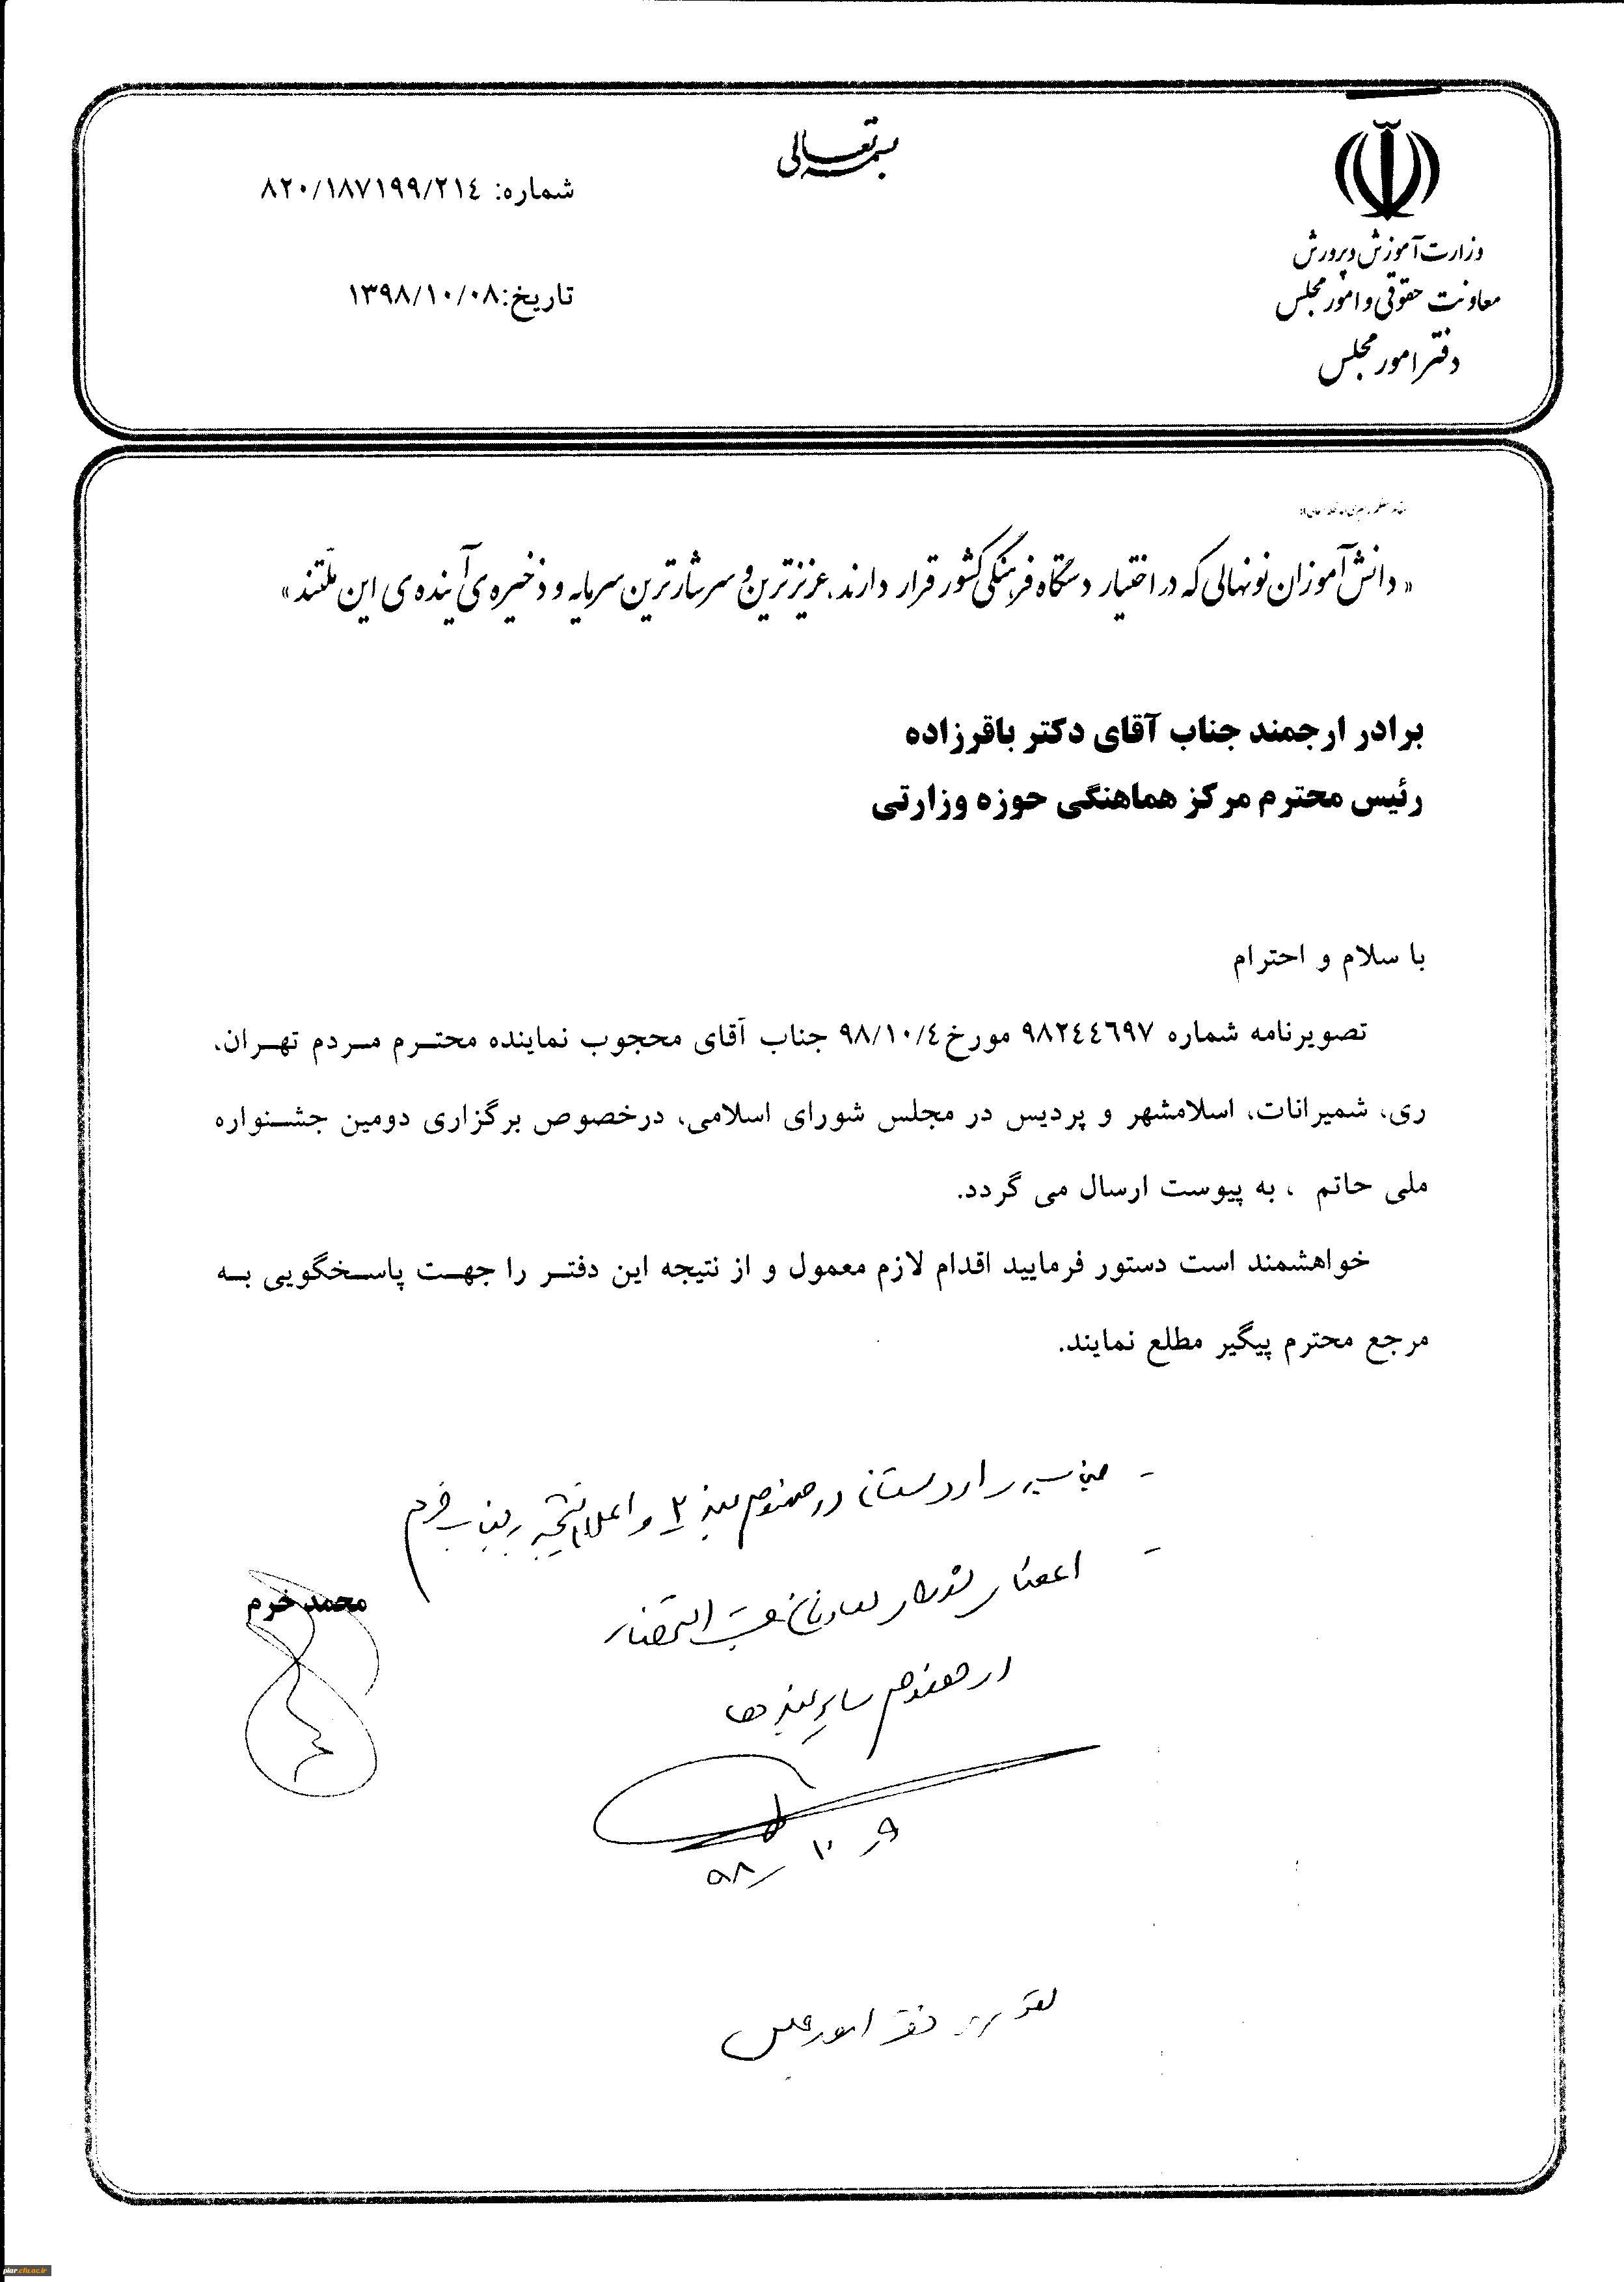 بسمه تعالی
وزارت آموزش و پرورش
معاونت حقوقی و امور مجلس
دفتر امور مجلس
شماره: ۸۲۰/۱۸۷۱۹۹/۲۱٤
تاریخ:۱۳۹۸/۱۰/۰۸
« دانش آموزان نونهالی که در اختیار دستگاه فرهنگی کشور قرار دارند، عزیزترین و سرشارترین سرمایه و ذخیره ی آینده ی این ملتند »
برادر ارجمند جناب آقای دکتر باقرزاده
رئیس محترم مرکز هماهنگی حوزه وزارتی
با سلام و احترام
تصویرنامه شماره ۹۸۲٤٤٦۹۷ مورخ ۹۸/۱۰/٤ جناب آقای محجوب نماینده محترم مردم تهران،
ری، شمیرانات، اسلامشهر و پردیس در مجلس شورای اسلامی، درخصوص برگزاری دومین جشنواره
ملی حاتم ، به پیوست ارسال می گردد.
خواهشمند است دستور فرمایید اقدام لازم معمول و از نتیجه این دفتر را جهت پاسخگویی به
مرجع محترم پیگیر مطلع نمایند.
- در خصوص بند ۲ و اعلام نتیجه
- اعضای شورای معاونان جهت استحضار
در خصوص سایر بندها
محمد خرم
۹۸/۱۰/۹
دفتر امور مجلس
piar.cfu.ac.ir